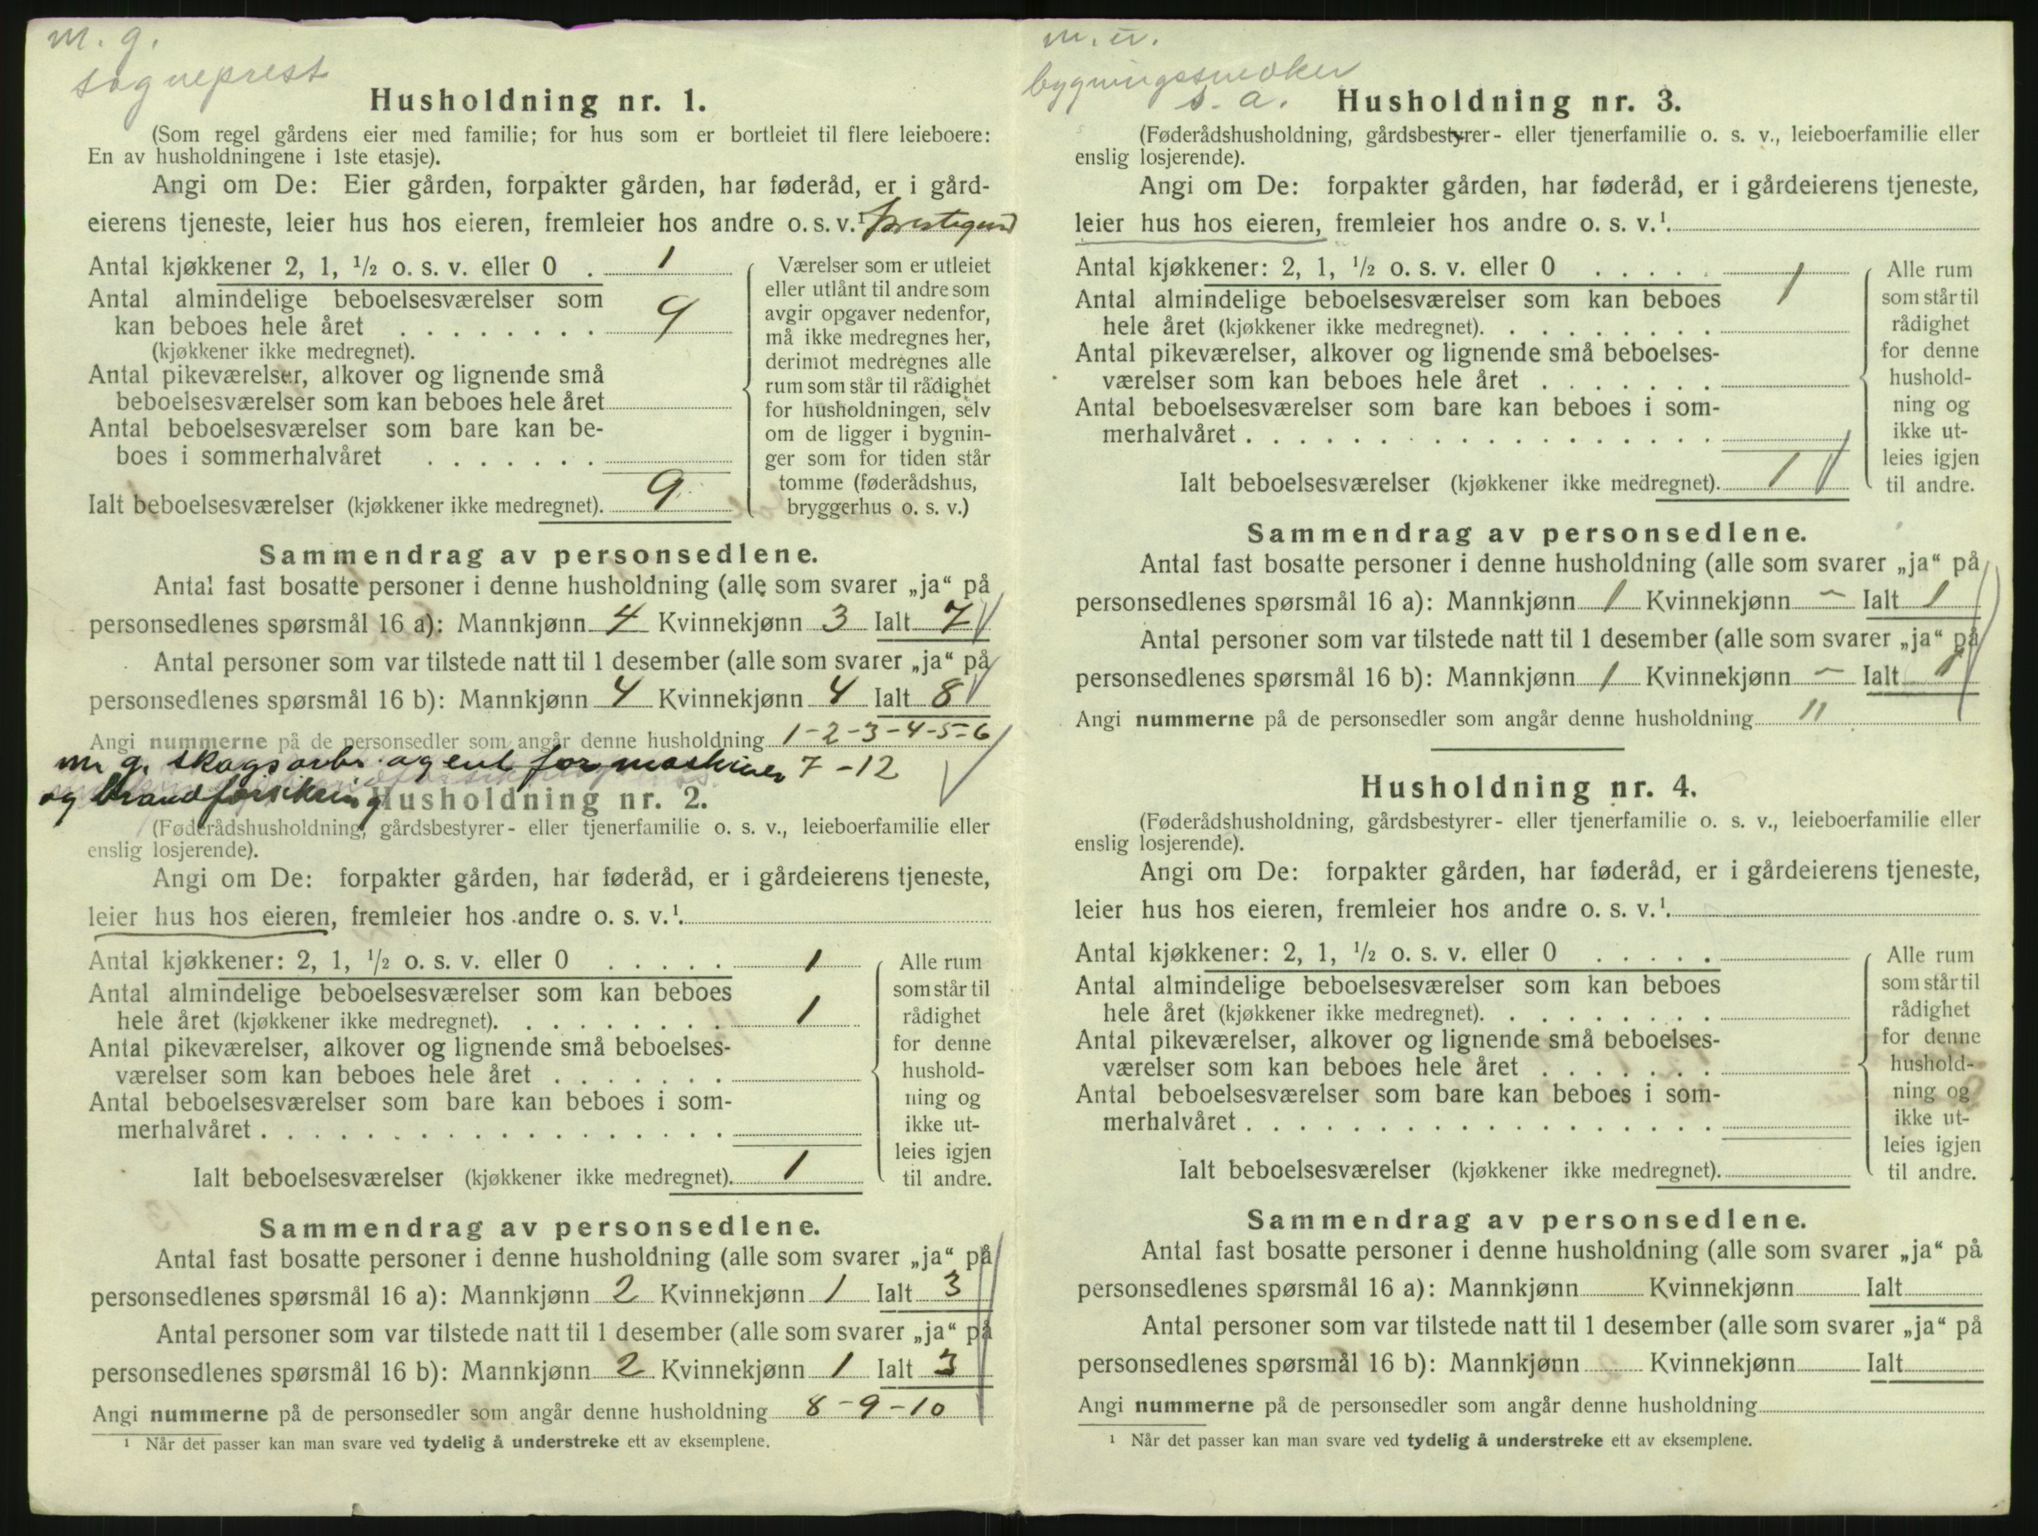 m. g.
sogneprest
Husholdning nr. 1.
(Som regel gårdens eier med familie; for hus som er bortleiet til flere leieboere:
En av husholdningene i 1ste etasje).
Angi om De: Eier gården, forpakter gården, har føderåd, er i gård-
eierens tjeneste, leier hus hos eieren, fremleier hos andre o. s. v.¹
Antal kjøkkener 2, 1, ½ o. s. v. eller 0 . 1
Antal almindelige beboelsesværelser som
kan beboes hele året . . . . . . . . 9
(kjøkkener ikke medregnet).
Antal pikeværelser, alkover og lignende små
beboelsesværelser som kan beboes hele året
Antal beboelsesværelser som bare kan be-
boes i sommerhalvåret . . . . . . .
Ialt beboelsesværelser (kjøkkener ikke medregnet). 9
Værelser som er utleiet
eller utlånt til andre som
avgir opgaver nedenfor,
må ikke medregnes her,
derimot medregnes alle
rum som står til rådighet
for husholdningen, selv
om de ligger i bygnin-
ger som for tiden står
tomme (føderådshus,
bryggerhus o. s. v.)
Sammendrag av personsedlene.
Antal fast bosatte personer i denne husholdning (alle som svarer „ja“ på
personsedlenes spørsmål 16 a): Mannkjønn 4 Kvinnekjønn 3 Ialt 7
Antal personer som var tilstede natt til 1 desember (alle som svarer „ja“ på
personsedlenes spørsmål 16 b): Mannkjønn 4 Kvinnekjønn 4 Ialt 8
Angi nummerne på de personsedler som angår denne husholdning 1-2-3-4-5-6
m. g. skogsarb. agent for maskiner 7-12
og brandforsikring
Husholdning nr. 2.
(Føderådshusholdning, gårdsbestyrer- eller tjenerfamilie o. s. v., leieboerfamilie eller
enslig losjerende).
Angi om De: forpakter gården, har føderåd, er i gårdeierens tjeneste,
leier hus hos eieren, fremleier hos andre o. s. v.¹.
Antal kjøkkener: 2, 1, ½ o. s. v. eller 0 . . . . . 1
Antal almindelige beboelsesværelser som kan beboes
hele året (kjøkkener ikke medregnet). . . . . . . . . 1
Antal pikeværelser, alkover og lignende små beboelses-
værelser som kan beboes hele året . . . . . . .
Antal beboelsesværelser som bare kan beboes i som-
merhalvåret . . . . . . . . . . . . . . . . . .
Ialt beboelsesværelser (kjøkkener ikke medregnet). 1
Alle rum
som står til
rådighet
for denne
hushold-
ning og
ikke ut-
leies igjen
til andre.
Sammendrag av personsedlene.
Antal fast bosatte personer i denne husholdning (alle som svarer „ja“ på
personsedlenes spørsmål 16 a): Mannkjønn 2 Kvinnekjønn 1 Ialt 3
Antal personer som var tilstede natt til 1 desember (alle som svarer „ja“ på
personsedlenes spørsmål 16 b): Mannkjønn 2 Kvinnekjønn 1 Ialt 3
Angi nummerne på de personsedler som angår denne husholdning 8-9-10
¹ Når det passer kan man svare ved tydelig å understreke ett av eksemplene.
m. u.
bygningssnedker
s. a.
Husholdning nr. 3.
(Føderådshusholdning, gårdsbestyrer- eller tjenerfamilie o. s. v., leieboerfamilie eller
enslig losjerende).
Angi om De: forpakter gården, har føderåd, er i gårdeierens tjeneste,
leier hus hos eieren, fremleier hos andre o. s. v.¹.
Antal kjøkkener: 2, 1, ½ o. s. v. eller 0 . . . . .
Antal almindelige beboelsesværelser som kan beboes 1
hele året (kjøkkener ikke medregnet). . . . . . . . .
Antal pikeværelser, alkover og lignende små beboelses-
værelser som kan beboes hele året . . . . . . .
Antal beboelsesværelser som bare kan beboes i som-
merhalvåret . . . . . . . . . . . . . . . . . .
Ialt beboelsesværelser (kjøkkener ikke medregnet). 1
Alle rum
som står til
rådighet
for denne
hushold-
ning og
ikke ut-
leies igjen
til andre.
Sammendrag av personsedlene.
Antal fast bosatte personer i denne husholdning (alle som svarer „ja“ på
personsedlenes spørsmål 16 a): Mannkjønn 1 Kvinnekjønn – Ialt 1
Antal personer som var tilstede natt til 1 desember (alle som svarer „ja“ på
personsedlenes spørsmål 16 b): Mannkjønn 1 Kvinnekjønn – Ialt 1
Angi nummerne på de personsedler som angår denne husholdning 11
Husholdning nr. 4.
(Føderådshusholdning, gårdsbestyrer- eller tjenerfamilie o. s. v., leieboerfamilie eller
enslig losjerende).
Angi om De: forpakter gården, har føderåd, er i gårdeierens tjeneste,
leier hus hos eieren, fremleier hos andre o. s. v.¹.
Antal kjøkkener: 2, 1, ½ o. s. v. eller 0 . . . . .
Antal almindelige beboelsesværelser som kan beboes
hele året (kjøkkener ikke medregnet). . . . . . . . .
Antal pikeværelser, alkover og lignende små beboelses-
værelser som kan beboes hele året . . . . . . .
Antal beboelsesværelser som bare kan beboes i som-
merhalvåret . . . . . . . . . . . . . . . . . .
Ialt beboelsesværelser (kjøkkener ikke medregnet).
Alle rum
som står til
rådighet
for denne
hushold-
ning og
ikke ut-
leies igjen
til andre.
Sammendrag av personsedlene.
Antal fast bosatte personer i denne husholdning (alle som svarer „ja“ på
personsedlenes spørsmål 16 a): Mannkjønn Kvinnekjønn Ialt
Antal personer som var tilstede natt til 1 desember (alle som svarer „ja“ på
personsedlenes spørsmål 16 b): Mannkjønn Kvinnekjønn Ialt
Angi nummerne på de personsedler som angår denne husholdning
¹ Når det passer kan man svare ved tydelig å understreke ett av eksemplene.